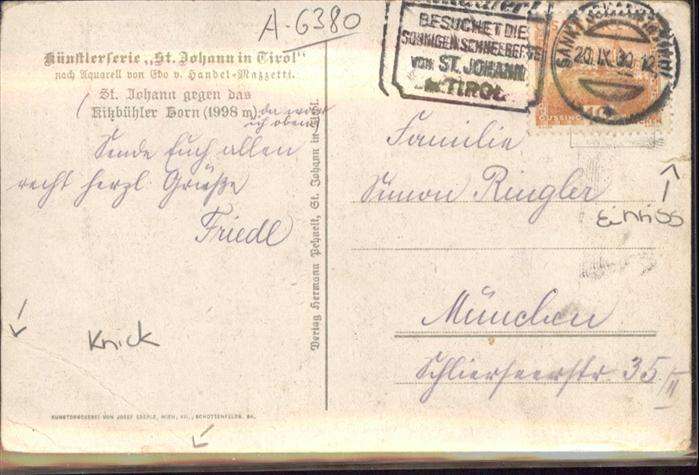 A-6380
Künstlerserie „St. Johann in Tirol"
nach Aquarell von Edo v. Handel-Mazzetti.
St. Johann gegen das
Kitzbühler Horn (1998 m)
(da war
ich oben)
Sende Euch allen
recht herzl. Grüße
Friedl
Knick
KUNSTDRUCKEREI VON JOSEF EBERLE, WIEN, VII., SCHOTTENFELDG.
Verlag Hermann Pehnelt, St. Johann in Tirol.
BESUCHET DIE
SONNIGEN SCHNEEBERGE
VON ST. JOHANN
IN TIROL
SANKT JOHANN
20.IX.30.12
GÜSSING
Familie
Simon Ringler
Einriss
München
Schlierseerstr 35/II